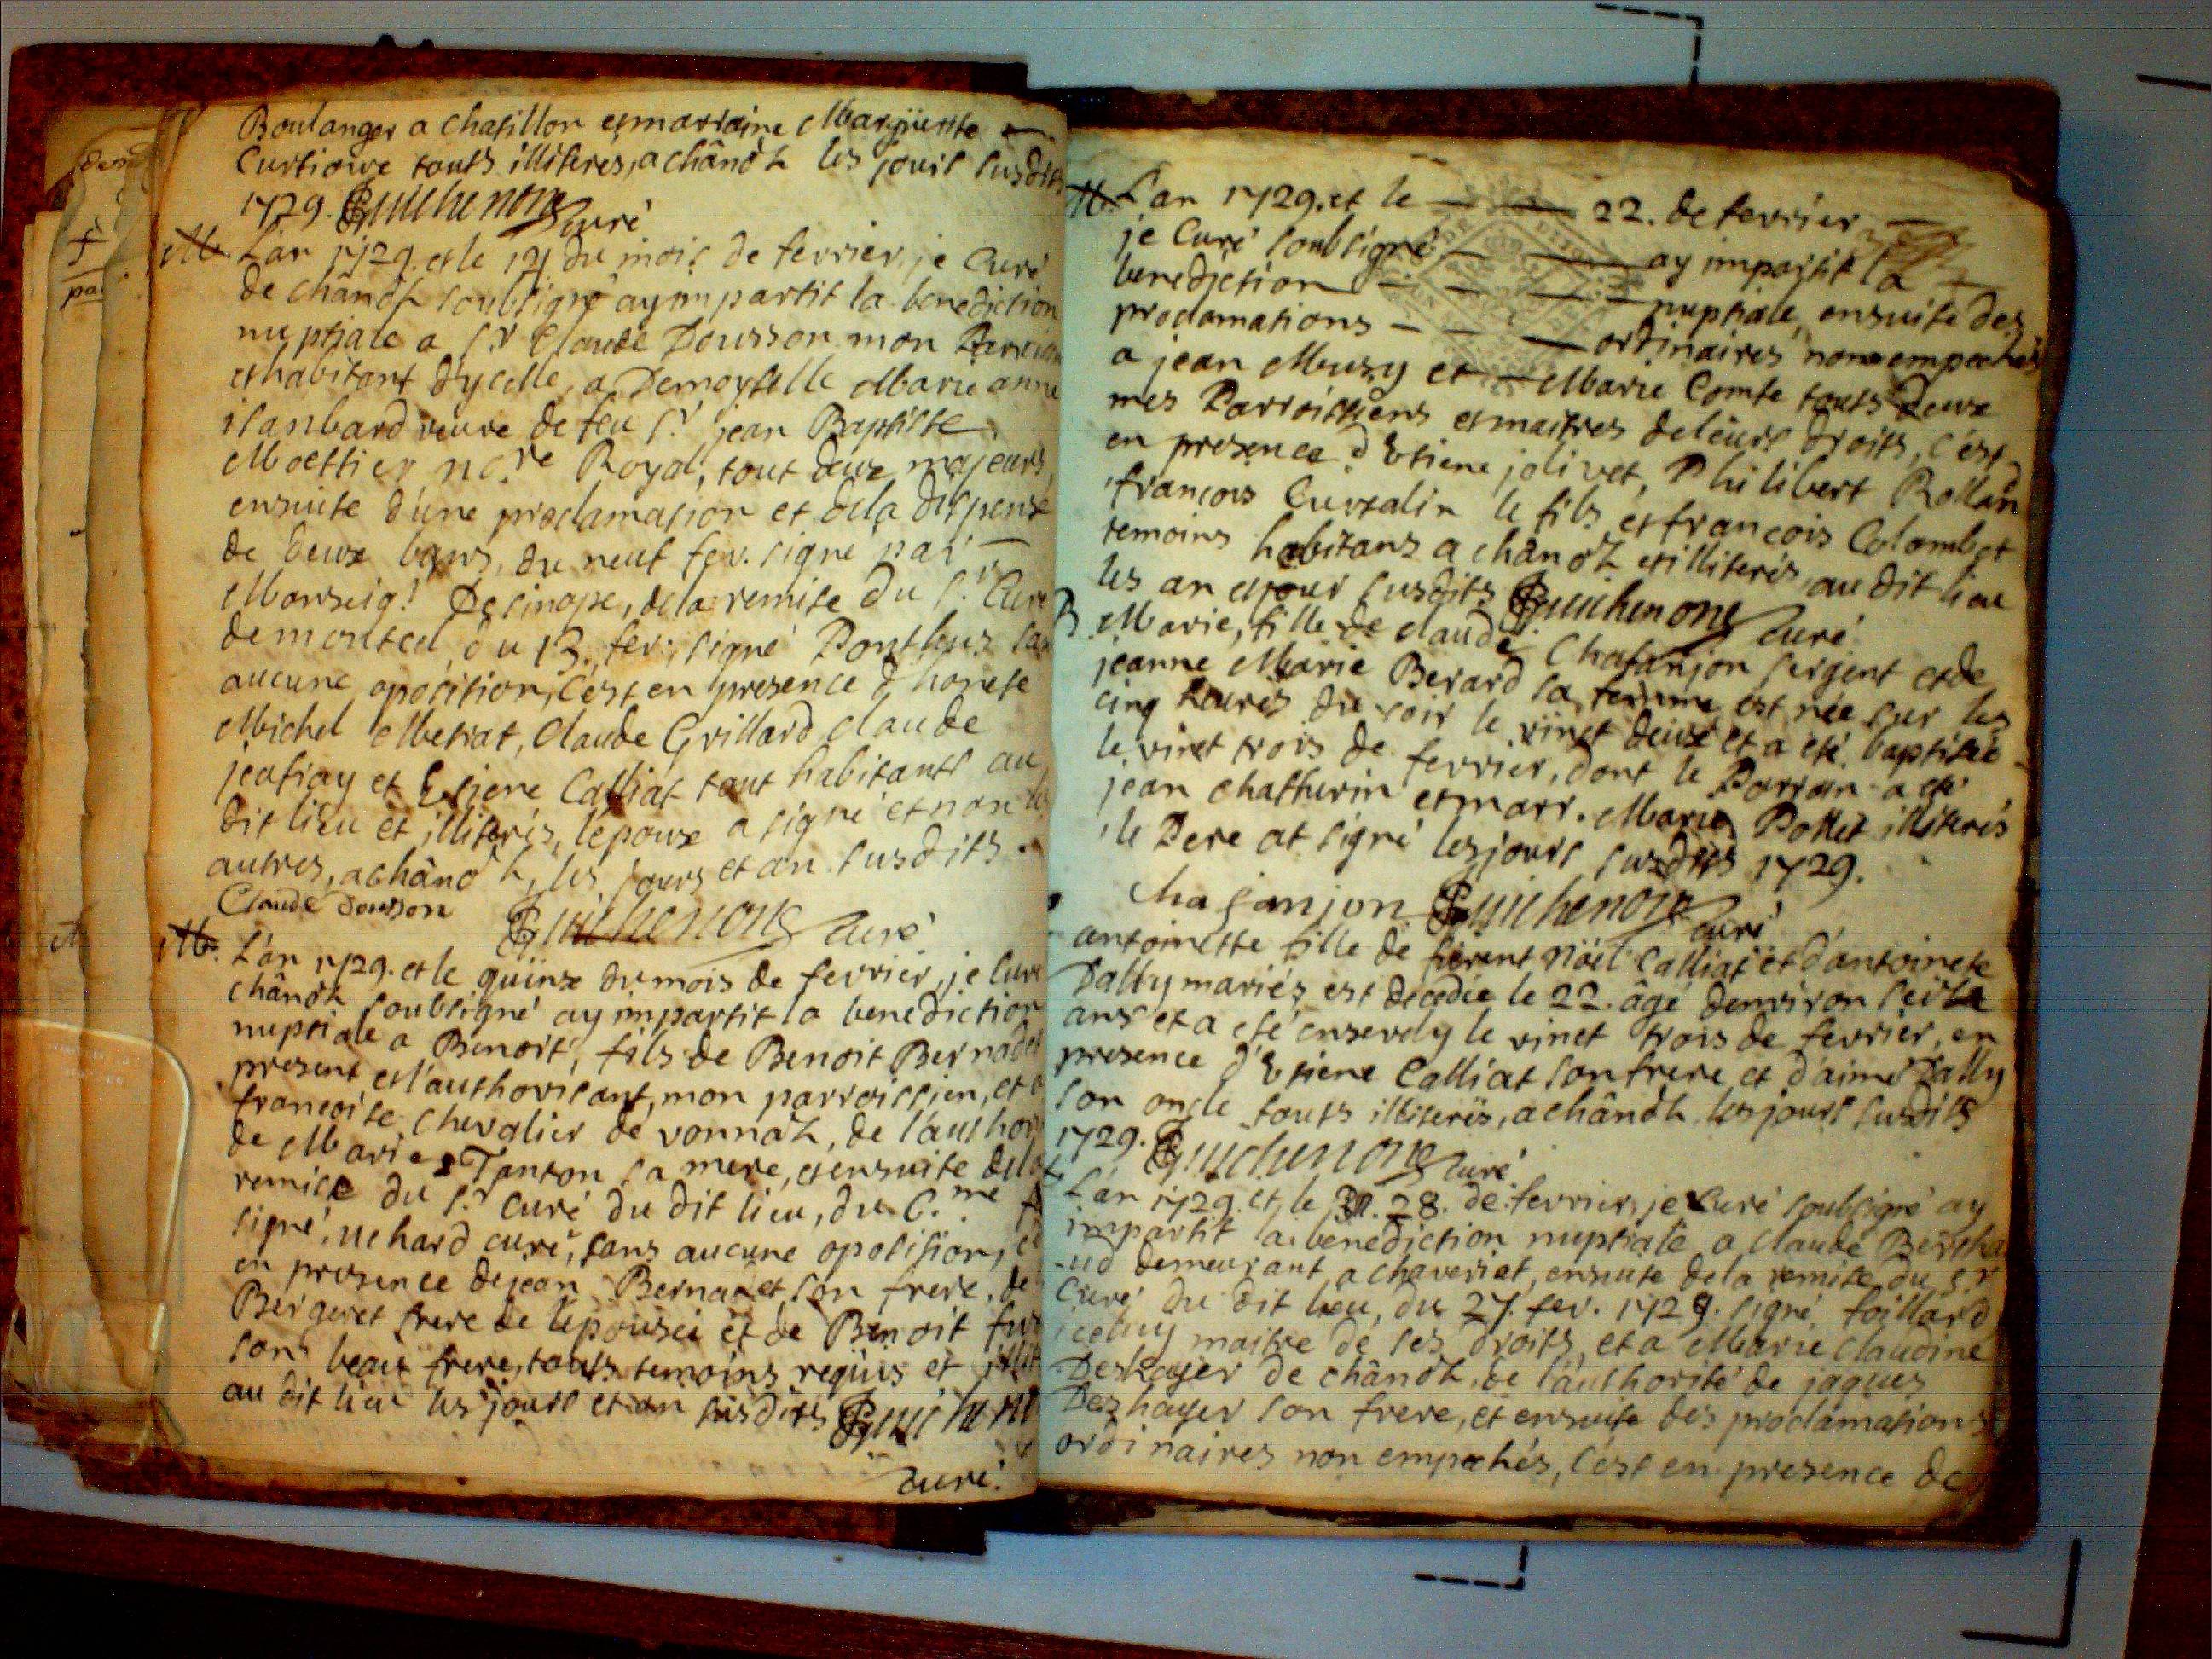 Boulanger a chatillon et marraine Margueritte
Curtioux touts illiteres, a chânoz les jours susdits
1729. Guichenon curé
M. L'an 1729. et le 14 du mois de fevrier, je Curé
de chânoz soubsigné ay impartit la benediction
nuptiale a sr Claude Dousson mon Parroissien
et habitant d'ycelle, a Demoyselle Marie anne
isanbard veuve de feu sr jean Baptiste
Moettier nore Royal, tout deux majeurs,
ensuite d'une proclamation et de la dispense
de deux bans, du neuf fev. signé par
Monseigr De sinope, de la remise du sr Curé
de montcel, du 13. fev. signé Ponthus sans
aucune oposition, c'est en presence d'honete
Michel Metrat, Claude Grillard claude
jeafiay et Etiene Calliat tout habitants au
dit lieu et illiterés, l'epoux a signé et non les
autres, a chânoz, les jours et an susdits.
Claude dousson Guichenon curé
M. L'an 1729. et le quinze du mois de fevrier, je curé
chânoz soubsigné ay impartit la benediction
nuptiale a Benoit, fils de Benoit Bernadet
present et l'authorisant, mon parroissien, et a
francoise Chevalier de vonnaz, de l'author
de Marie Tanton sa mere, et ensuite de la
remise du sr curé du dit lieu, du 6.me
signé, uchard curé, sans aucune oposition,
en presence de jean Bernadet son frere, de
Bergeret frere de l'epousée et de Benoit
son beau frere, touts temoins requis et illit
au dit lieu les jours et an susdits Guichenon
curé.
M. L'an 1729. et le 22. de fevrier
je Curé soubsigné ay impartit la
benediction nuptiale, ensuite des
proclamations ordinaires non empechés
a jean Musy et Marie Comte touts deux
mes Parroissiens et maitres de leurs droits, c'est
en presence d'Etiene jolivet, Philibert Rolland
françois Curtalin le fils et francois Colombet
temoins habitans a chânoz et illiterés, au dit lieu
les an et jour susdits Guichenon curé
B Marie, fille de claude Chafanjon sergent et de
jeanne Marie Berard sa femme est née sur les
cinq heures du soir le vinct deux et a eté baptisée
le vinct trois de fevrier, dont le Parrain a eté
jean chatherin et marr. Marie Pollet illiterés
le Pere at signé les jours susdits 1729.
Chafanjon Guichenon curé
antoinette fille de fierent Nöel Calliat et d'antoinete
Pally mariés est decedée le 22. âgé d'environ seize
ans et a eté ensevely le vinct trois de fevrier, en
presence d'Etiene Calliat son frere et d'aimé Pally
son oncle touts illiterés, a chânoz les jours susdits
1729. Guichenon curé
L'an 1729. et le 28. de fevrier, je Curé soubsigné ay
impartit la benediction nuptiale a Claude Bertha
-ud demeurant a chaveriat, ensuite de la remise du sr
Curé du dit lieu, du 27. fev. 1729. signé, foillard
iceluy maitre de ses droits, et a Marie Claudine
Deshayer de chânoz, de l'authorité de jaques
Deshayer son frere, et ensuite des proclamations
ordinaires non empechés, c'est en presence de